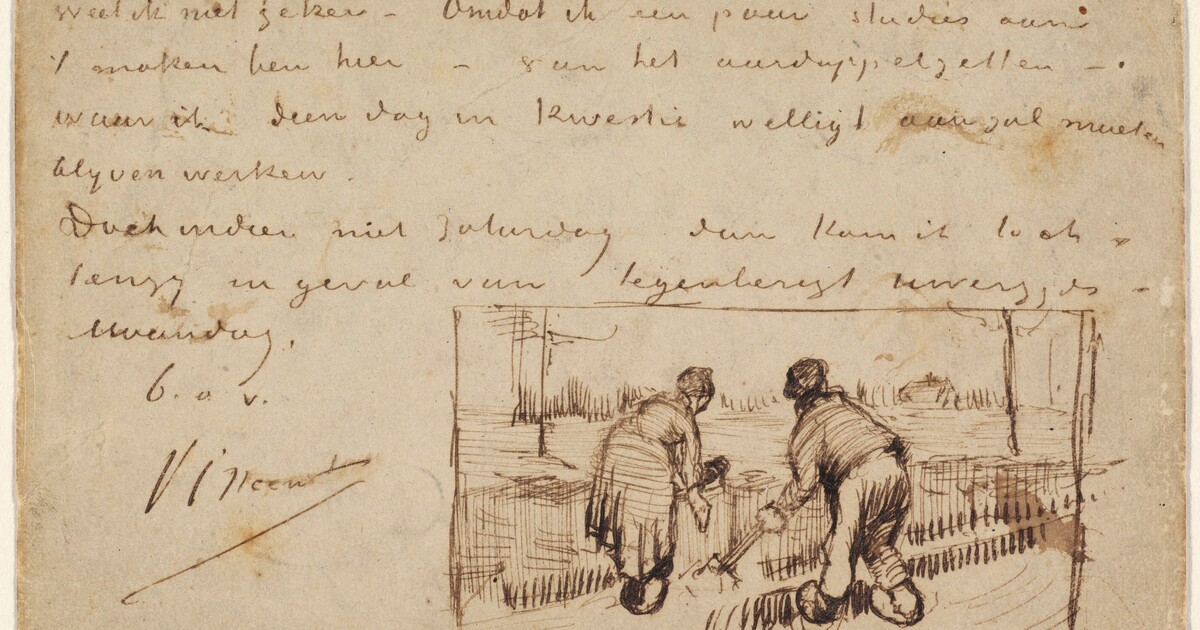 weet ik niet zeker – Omdat ik een paar studies aan
't maken ben hier – van het aardappelzetten –
waar ik dien dag in kwestie welligt aan zal moeten
blyven werken.
Doch indien niet Zaturdag dan kom ik toch
tenzy in geval van tegenberigt Uwerzyds –
Maandag.
b. a. v.
Vincent